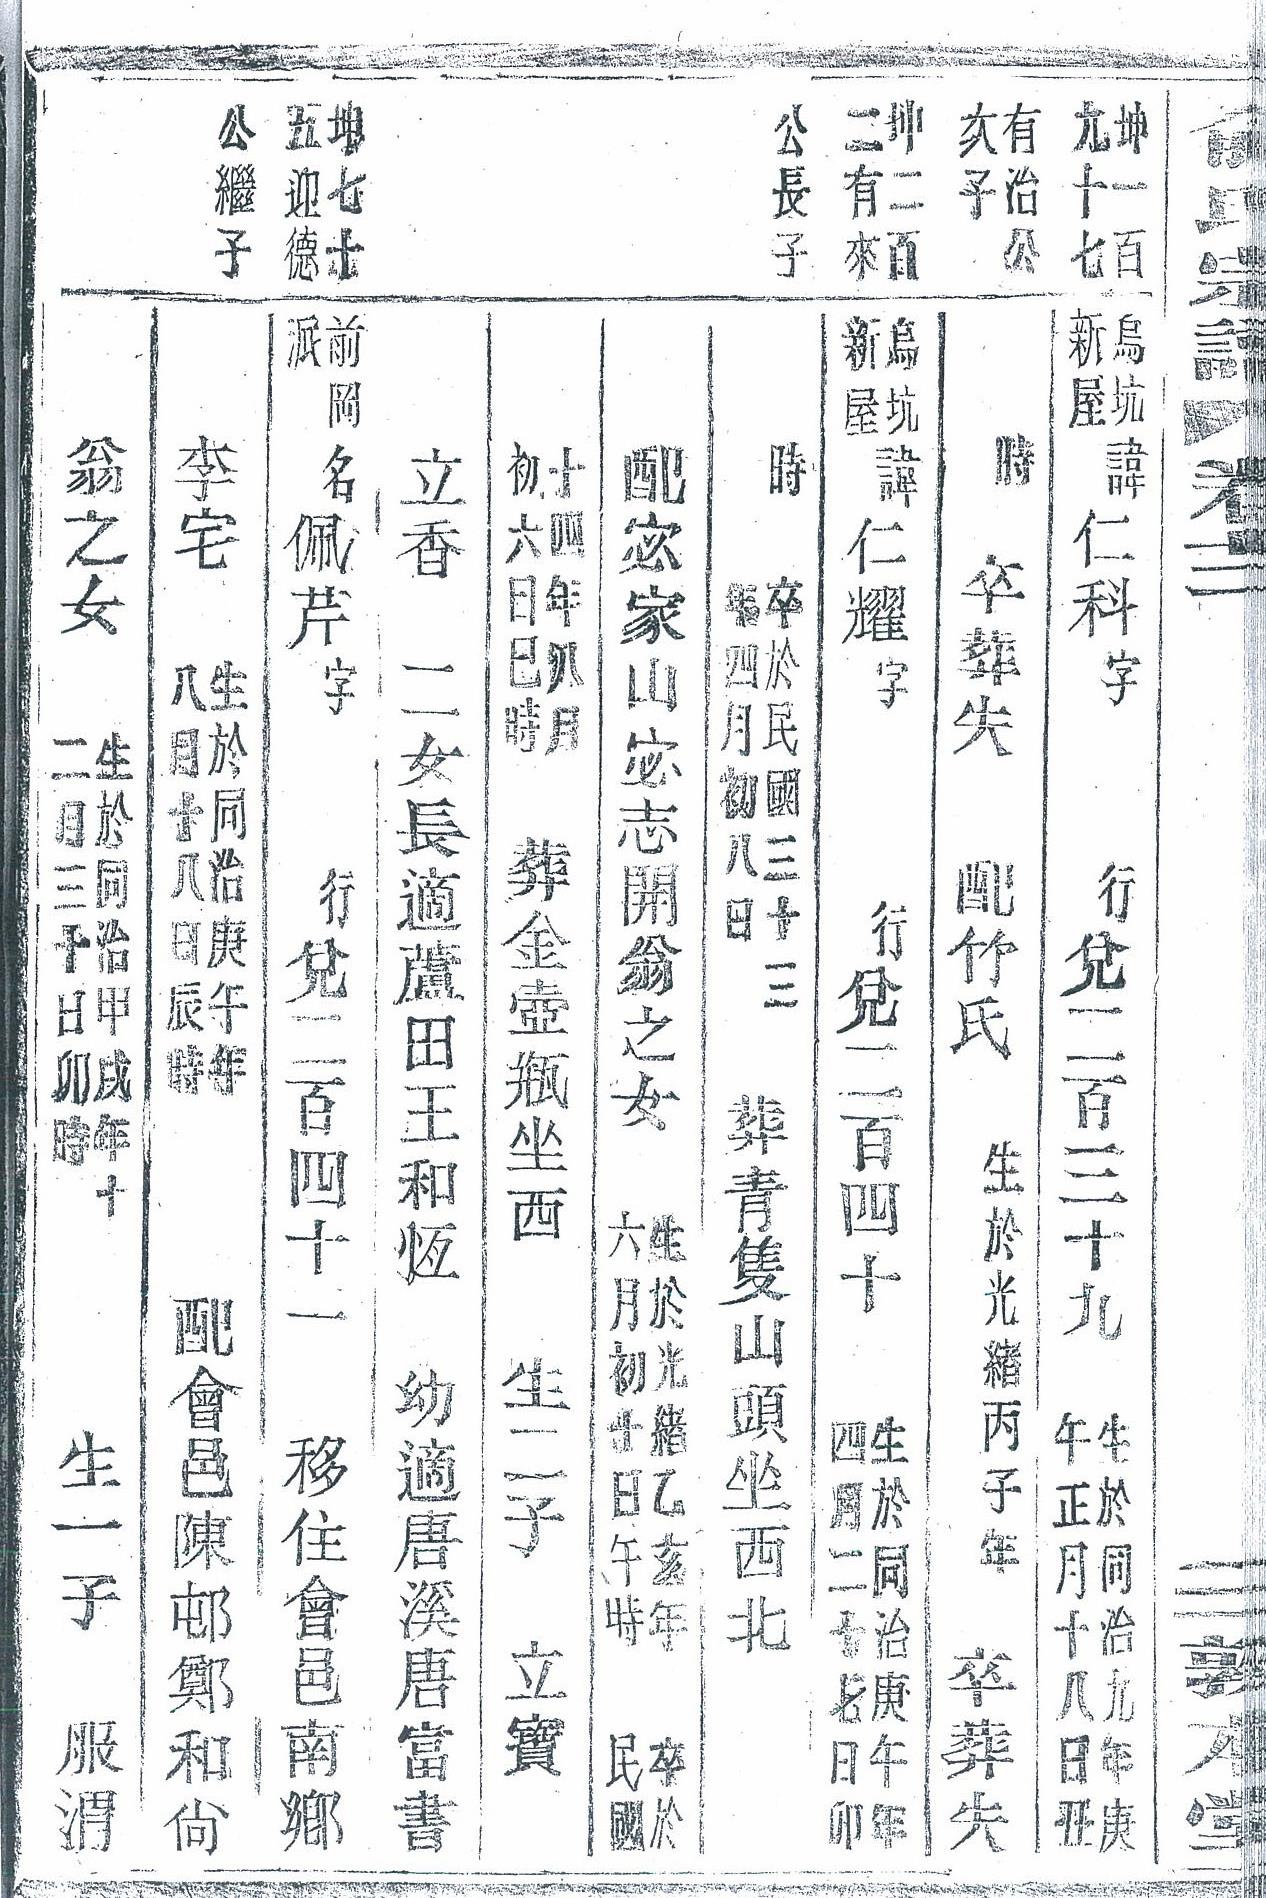 氏宗譜 卷二
敦本堂
坤一百九十七
有治公次子
烏坑新屋 諱仁科字 行兌二百三十九 生於同治九年庚午正月十八日丑
時 卒葬失 配竹氏 生於光緒丙子年 卒葬失
坤二百二有來
公長子
烏坑新屋 諱仁耀字 行兌二百四十 生於同治庚午年四月二十名日卯
時 卒於民國三十三年四月初八日 葬青隻山頭坐西北
配宓家山宓志開翁之女 生於光緒乙亥年六月初十日午時 卒於民國
十四年八月初六日巳時 葬金壺瓶坐西 生二子 立寶
立香 二女長適蘆田王和恆 幼適唐溪唐富書
坤七十五迎德
公繼子
前岡派 名佩芹字 行兌二百四十一 移住會邑南鄉
李宅 生於同治庚午年八月十八日辰時 配會邑陳邨鄭和尙
翁之女 生於同治甲戌年十二月三十日卯時 生一子 服渭